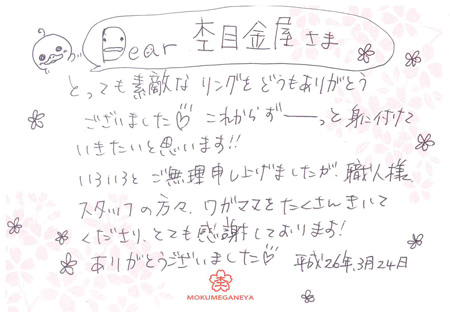 Dear 杢目金屋さま
とっても素敵な リングを どうもありがとう
ございました♡ これからずーーっと身に付けて
いきたいと思います!!
いろいろと ご無理申し上げましたが、職人様、
スタッフの方々、ワガママをたくさんきいて
くださり、とても感謝しております!
ありがとうございました♡ 平成26年.3月24日
MOKUMEGANEYA